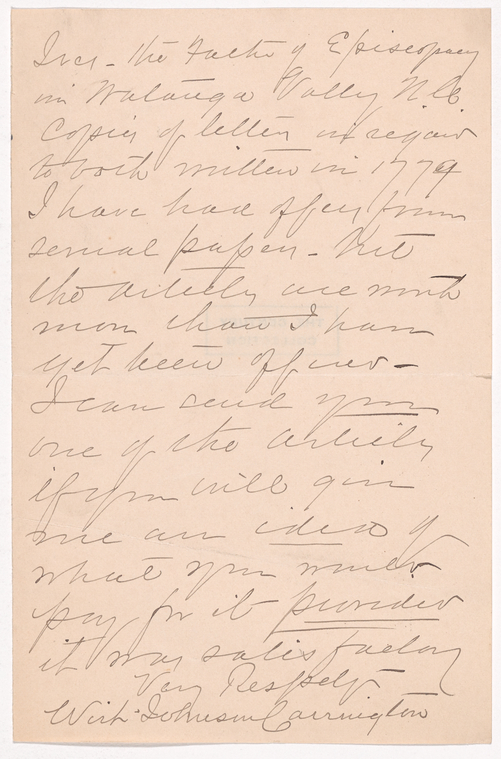 Ives - the Father of Episcopacy
in Watauga Vally N.C.
Copies of letters in regard
to both written in 1779
I have had offers from
several papers - but
the articles are worth
more than I have
yet been offered -
I can send you
one of the articles
if you will give
me an idea of
what you would
pay for it provided
it was satisfactory
Very Respctfy
Wirt Johnson Carrington